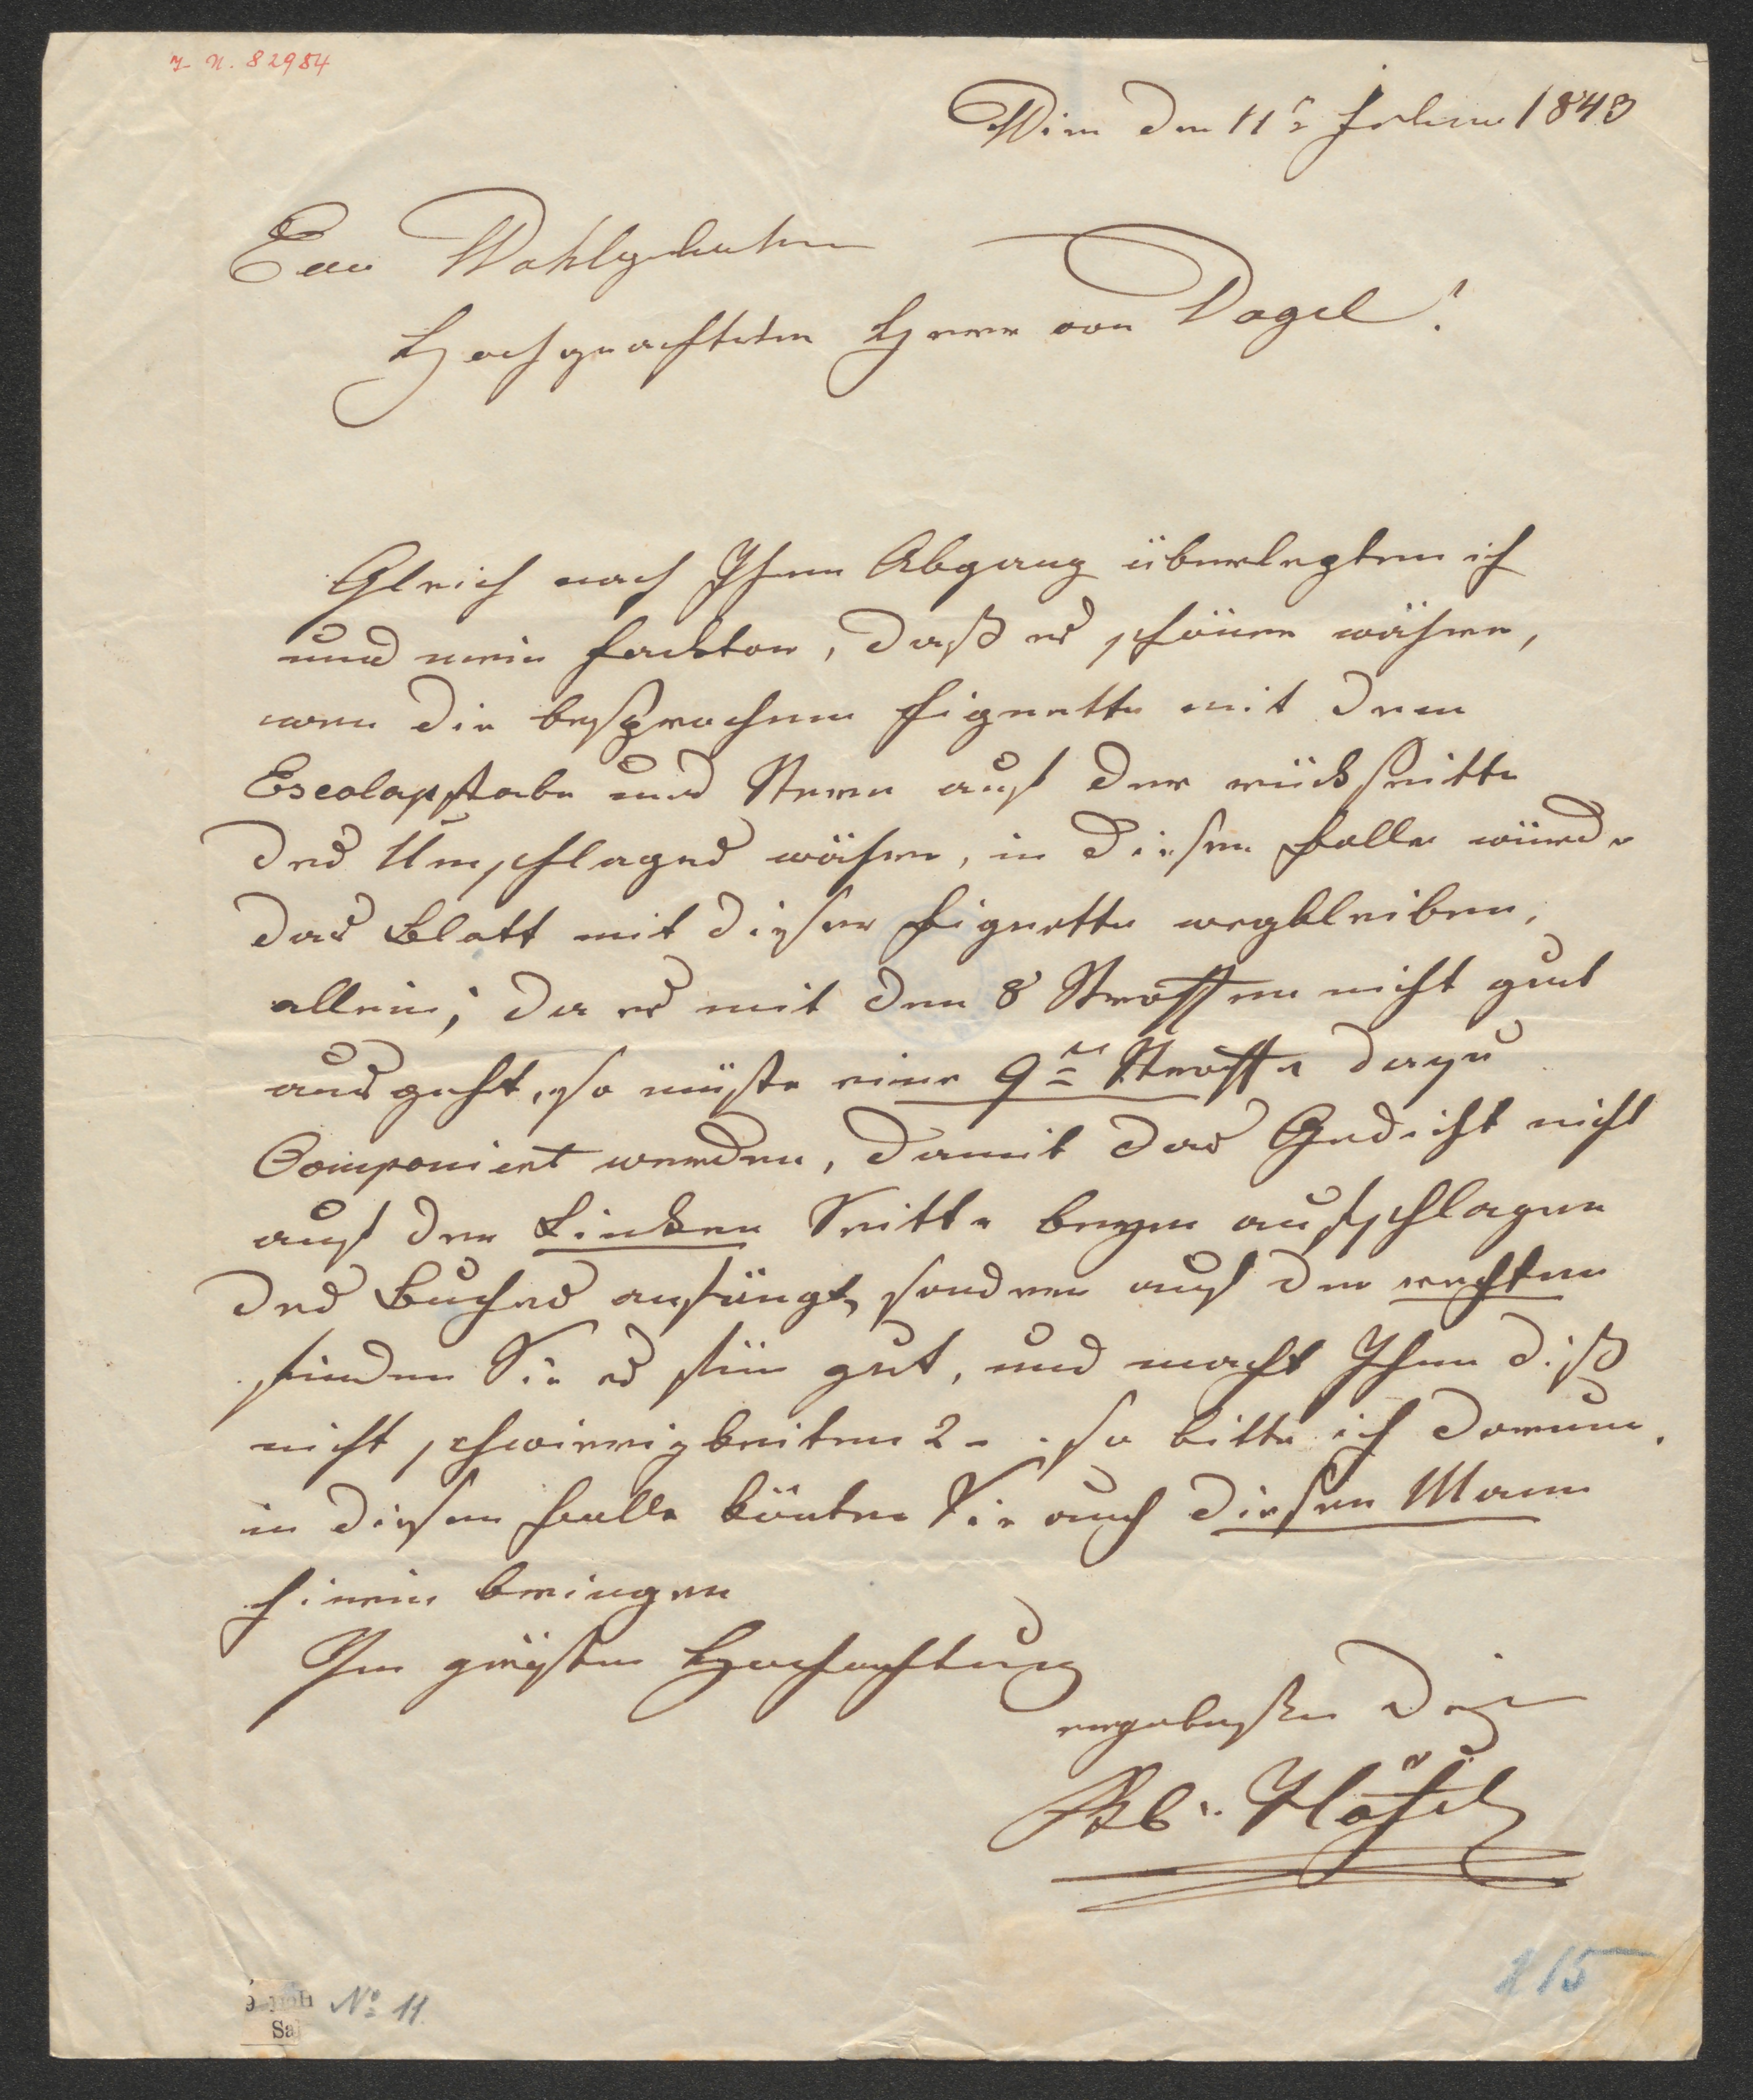 J. N. 82984
Wien den 11t Februar 1843
Euer Wohlgeboren
Hochgeachteter Herr von Vogel!
Gleich nach Ihren Abgang überlegten ich
und mein Facktor, daß es schöner währe,
wen die besprochene Fignette mit dem
Escolapstabe und Stern auf der rückseitte
des Umschlages währe, in diesen Falle würde
das Blatt mit dieser Fignette wegbleiben,
allein; da es mit den 8 Stroffen nicht gut
ausgeht, so müste eine 9te Stroffe dazu
Componiert werden, damit das Gedicht nicht
auf der Linken Seitte beym aufschlagen
des Buches anfängt, sondern auf der rechten
finden Sie es für gut, und macht Ihnen diß
nicht schwierigkeiten 2 - . so bitte ich darum.
in diesen Falle könten Sie auch diesen Mann
hinein bringen
Ihr größten Hochachtung
ergebenster
Bl. Höfel
No 11
Sa
115